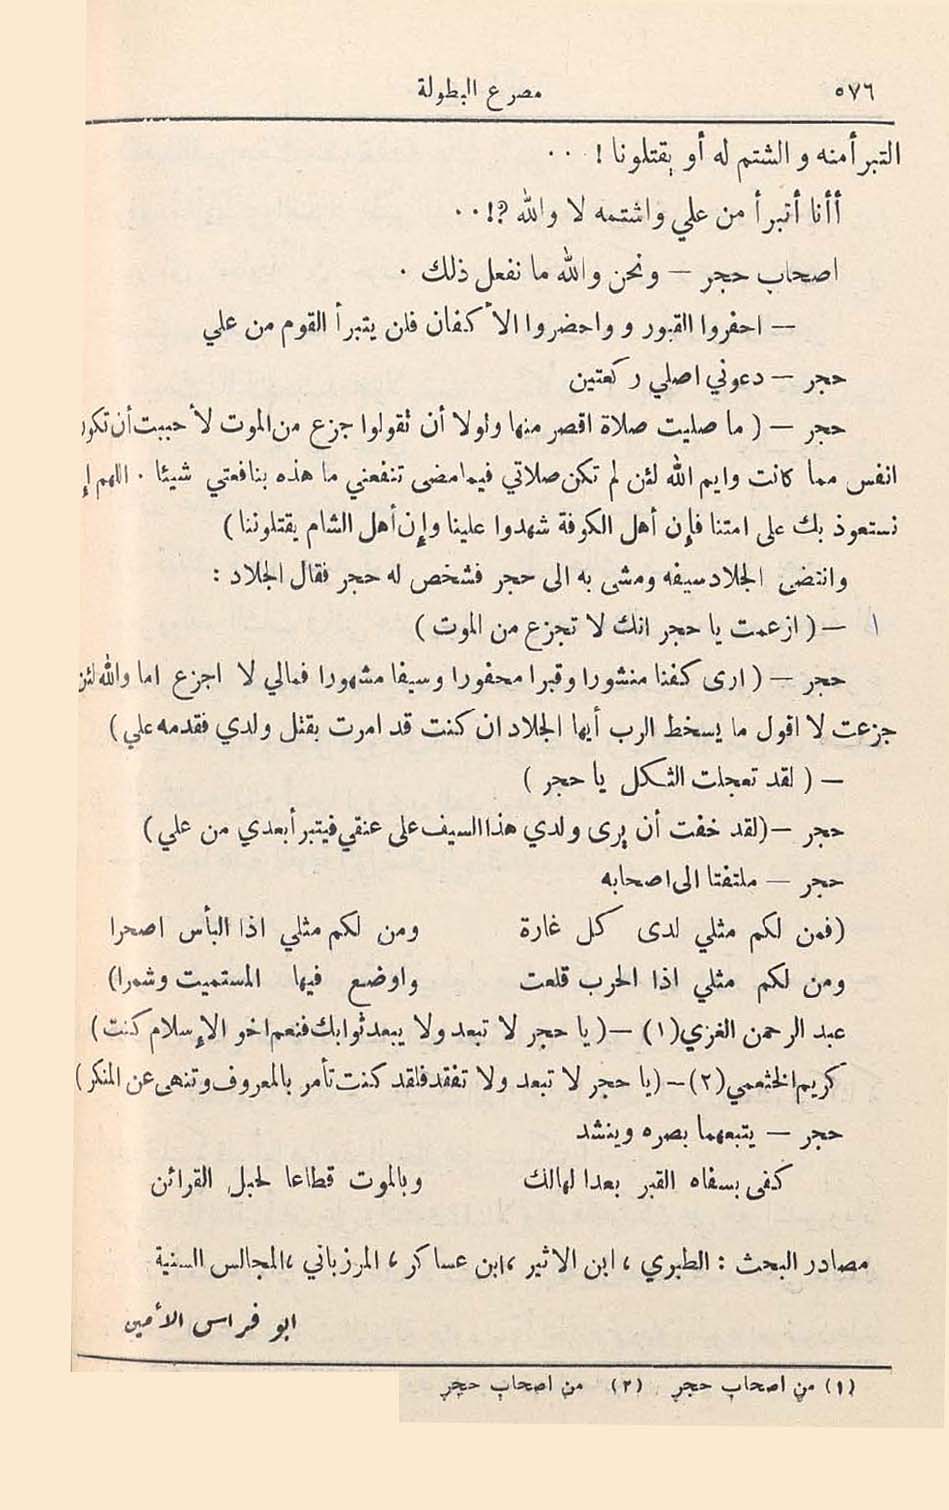 ٥٧٦ مصرع البطولة
التبرأ منه و الشتم له أو يقتلونا ! ٠٠٠
أأنا أتبرأ من علي واشتمه لا والله ?!٠٠٠
اصحاب حجر — ونحن والله ما نفعل ذلك ٠
— احفروا القبور و واحضروا الأكفان فلن يتبرأ القوم من علي
حجر — دعوني اصلي ركعتين
حجر — ( ما صليت صلاة اقصر منها ولولا أن تقولوا جزع من الموت لأحببت أن تكون
انفس مما كانت وايم الله لئن لم تكن صلاتي فيما مضى تنفعني ما هذه بنافعتي شيئا ٠ اللهم
نستعوذ بك على امتنا فإن أهل الكوفة شهدوا علينا وإن أهل الشام يقتلوننا )
وانتضى الجلاد سيفه ومشى به الى حجر فشخص له حجر فقال الجلاد :
— ( ازعمت يا حجر انك لا تجزع من الموت )
حجر — ( ارى كفنا منشورا وقبرا محفورا وسيفا مشهورا فمالي لا اجزع اما والله لئن
جزعت لا اقول ما يسخط الرب أيها الجلاد ان كنت قد امرت بقتل ولدي فقدمه علي )
— ( لقد تعجلت الثكل يا حجر )
حجر —(لقد خفت أن يرى ولدي هذا السيف على عنقي فيتبرأ بعدي من علي )
حجر — ملتفتا الى اصحابه
(فمن لكم مثلي لدى كل غارة ومن لكم مثلي اذا البأس اصحرا
ومن لكم مثلي اذا الحرب قلعت واوضع فيها المستميت وشمرا)
عبد الرحمن الغزي(١) —(يا حجر لا تبعد ولا يبعد ثوابك فنعم اخو الإسلام كنت )
كريم الخثعمي(٢)—(يا حجر لا تبعد ولا تفقد فلقد كنت تأمر بالمعروف وتنهى عن المنكر )
حجر — يتبعهما بصره وينشد
كفى بسفاه القبر بعدا لهالك وبالموت قطاعا لحبل القرائن
مصادر البحث : الطبري ، ابن الاثير ،ابن عساكر ، المرزباني ،المجالس السنية
ابو فراس الأمين
(١) من اصحاب حجر (٢) من اصحاب حجر